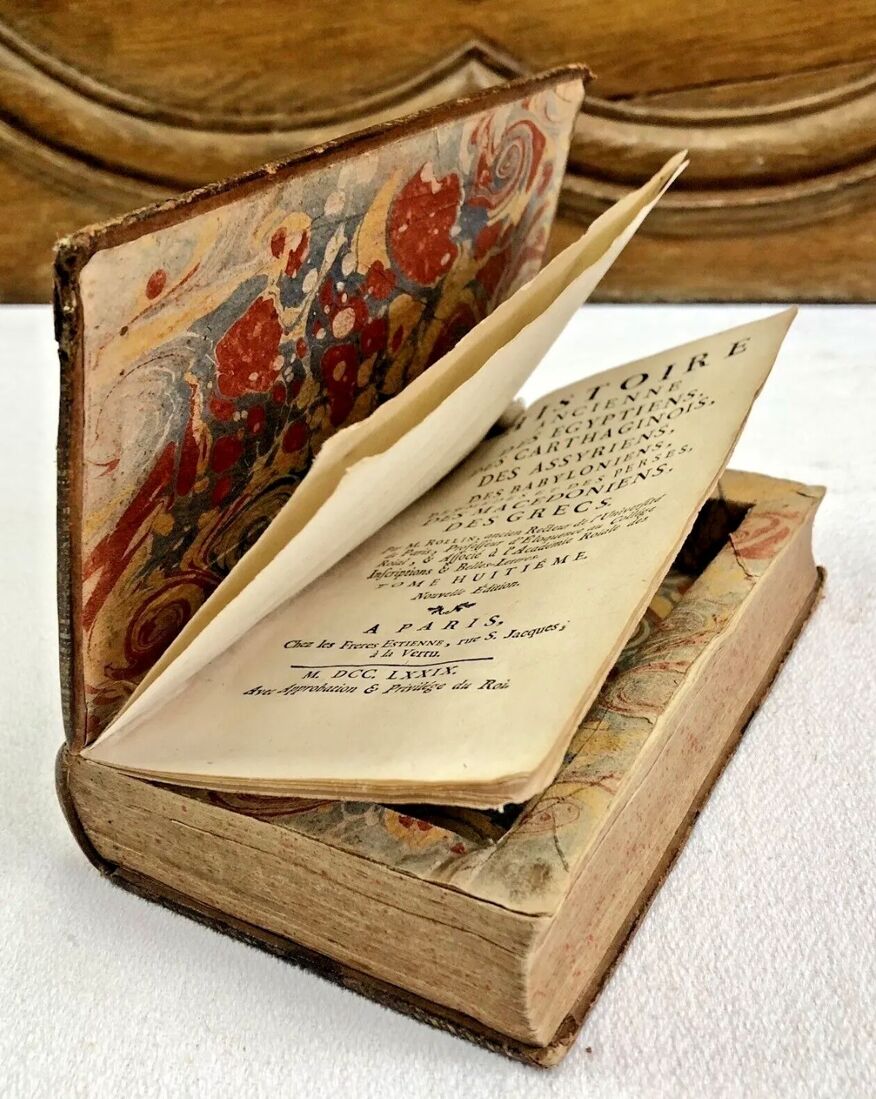 HISTOIRE
ANCIENNE
DES EGYPTIENS,
DES CARTHAGINOIS,
DES ASSYRIENS,
DES BABYLONIENS,
DES MEDES ET DES PERSES,
DES MACEDONIENS,
DES GRECS.
Par M. ROLLIN, ancien Recteur de l'Université
de Paris, Professeur d'Eloquence au Collége
Roial, & Associé à l'Académie Roiale des
Inscriptions & Belles-Lettres.
TOME HUITIÉME.
Nouvelle Edition.
A PARIS,
Chez les Freres ESTIENNE, rue S. Jacques,
à la Vertu.
M. DCC. LXXIX.
Avec Approbation & Privilége du Roi.